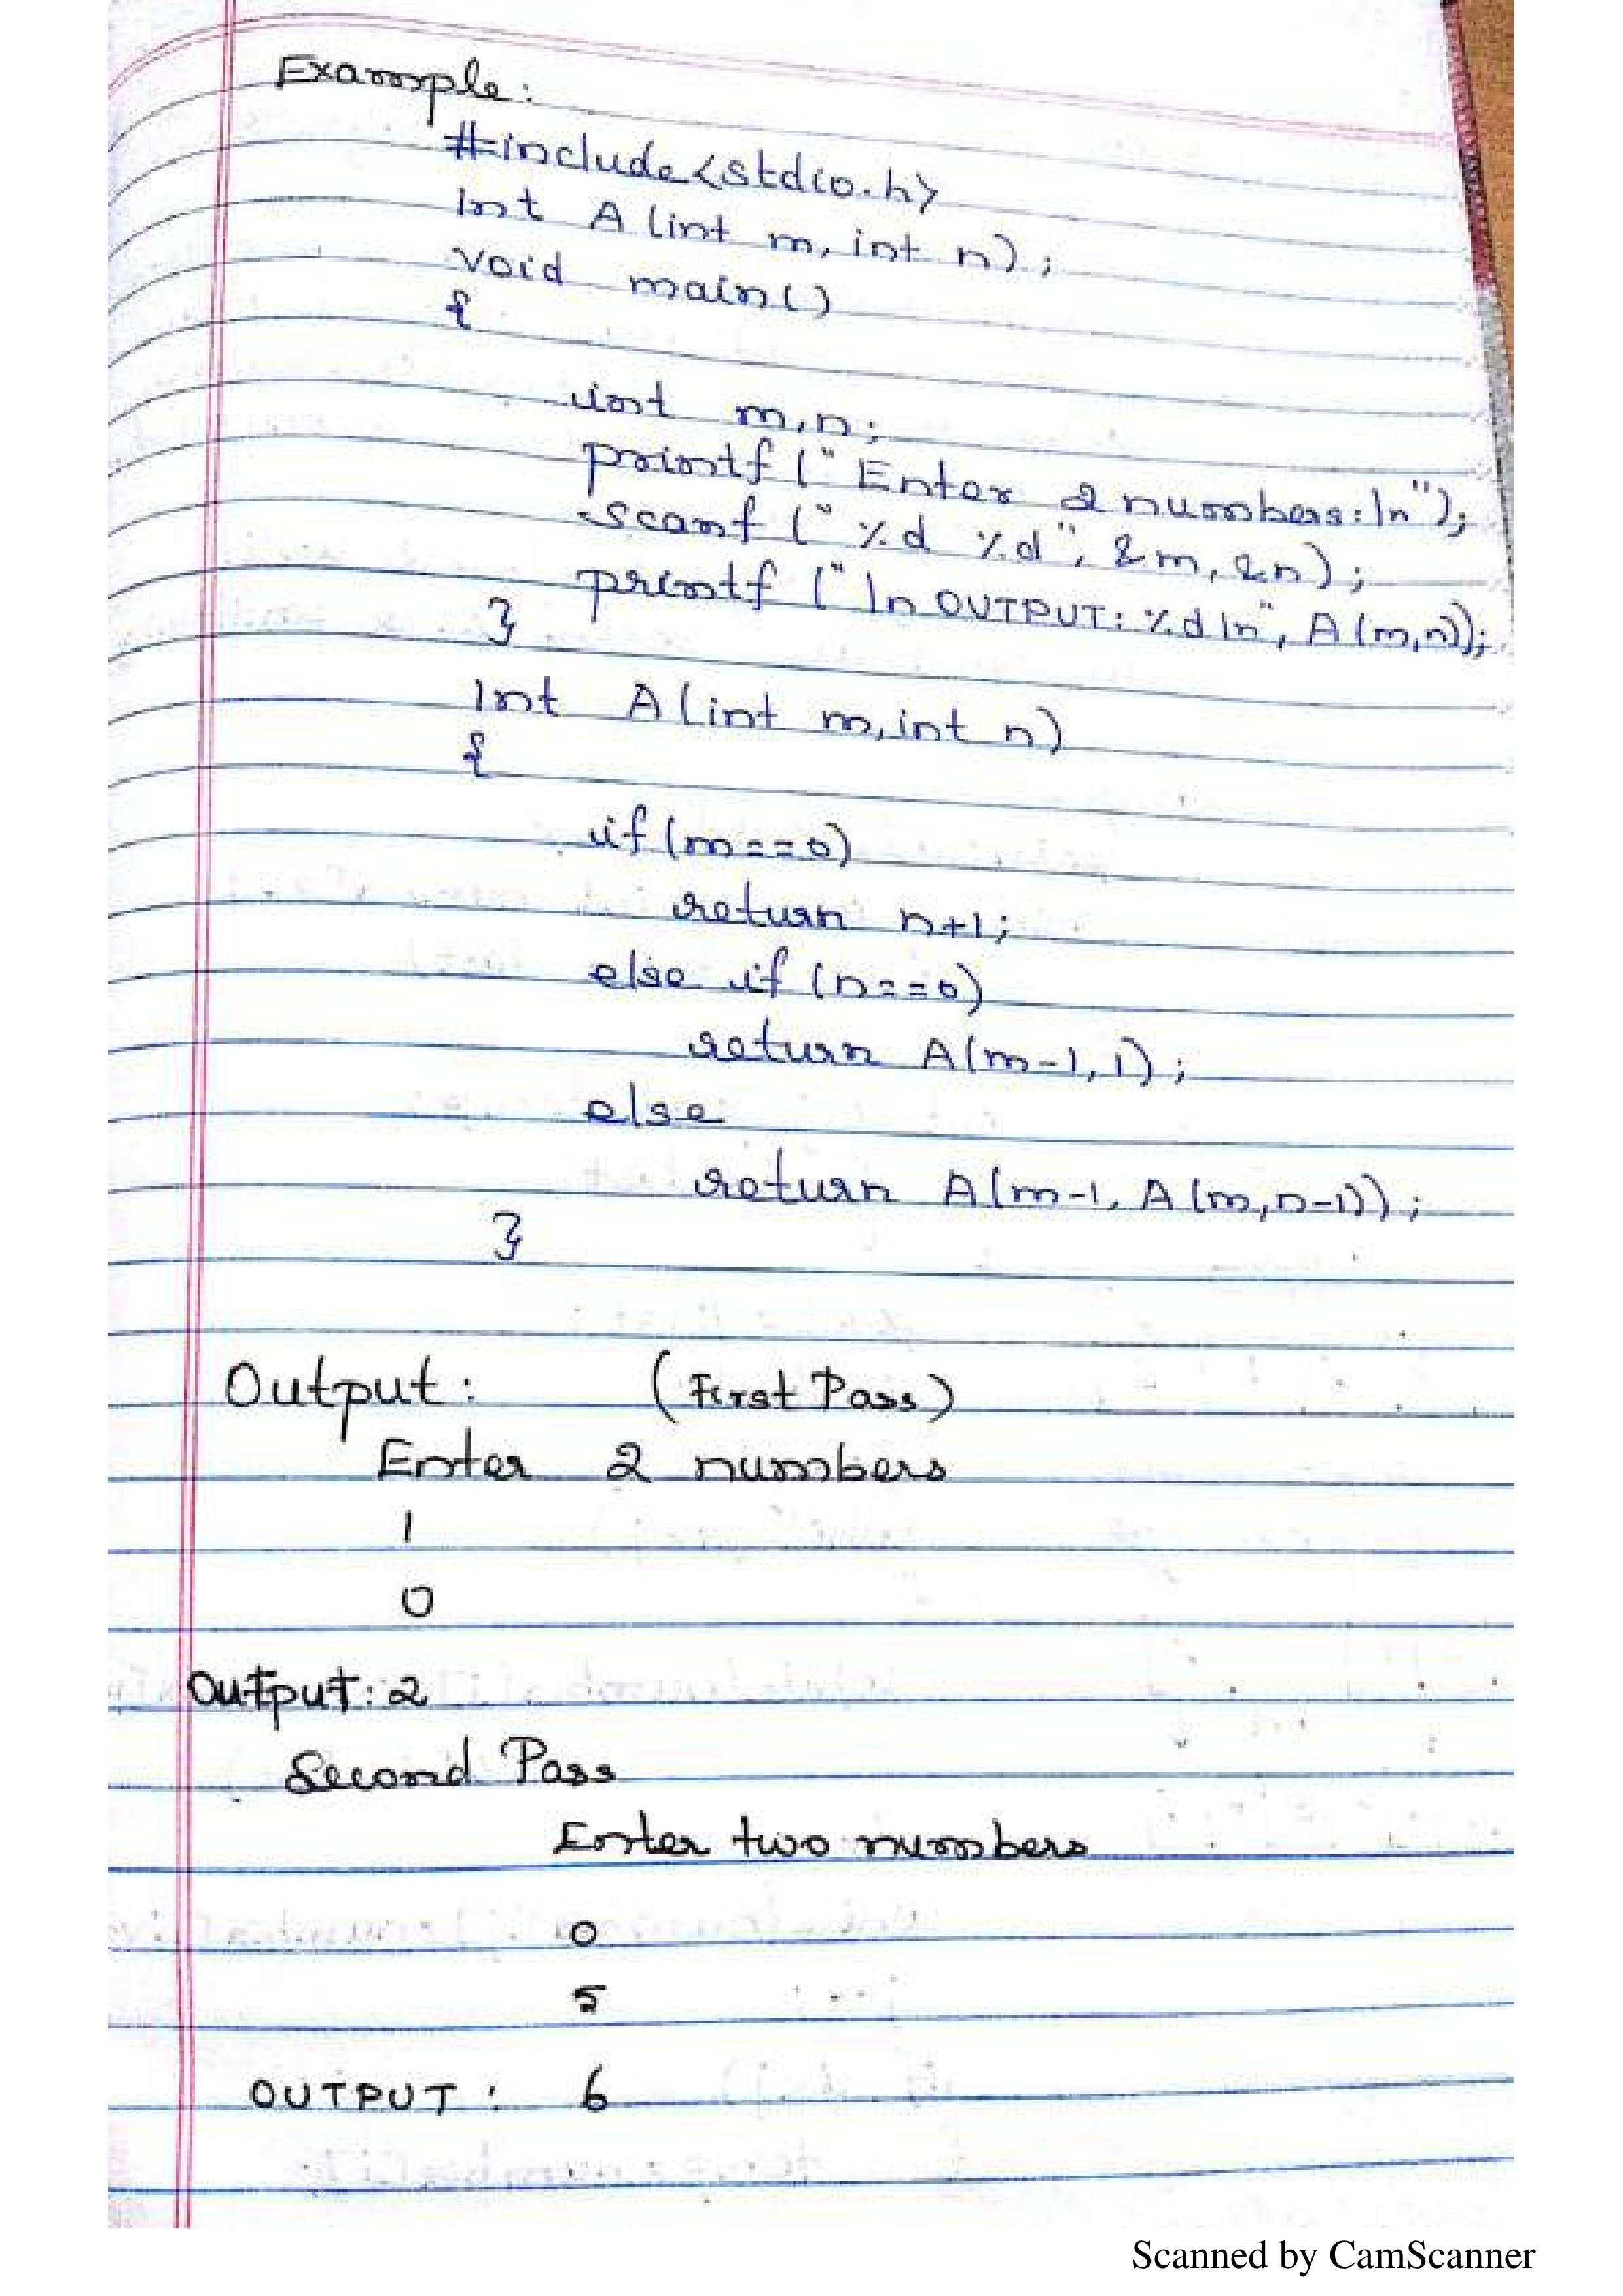 Example:
#include<stdio.h>
int A (int m, int n);
void main()
{
int m,n;
printf ("Enter 2 numbers:\n");
scanf ("%d %d", &m, &n);
printf ("\n OUTPUT: %d\n", A(m,n));
}
int A(int m,int n)
{
if(m==0)
return n+1;
else if (n==0)
return A(m-1,1);
else
return A(m-1, A(m,n-1));
}
Output: (First Pass)
Enter 2 numbers
1
0
Output: 2
Second Pass
Enter two numbers
0
5
OUTPUT: 6
Scanned by CamScanner